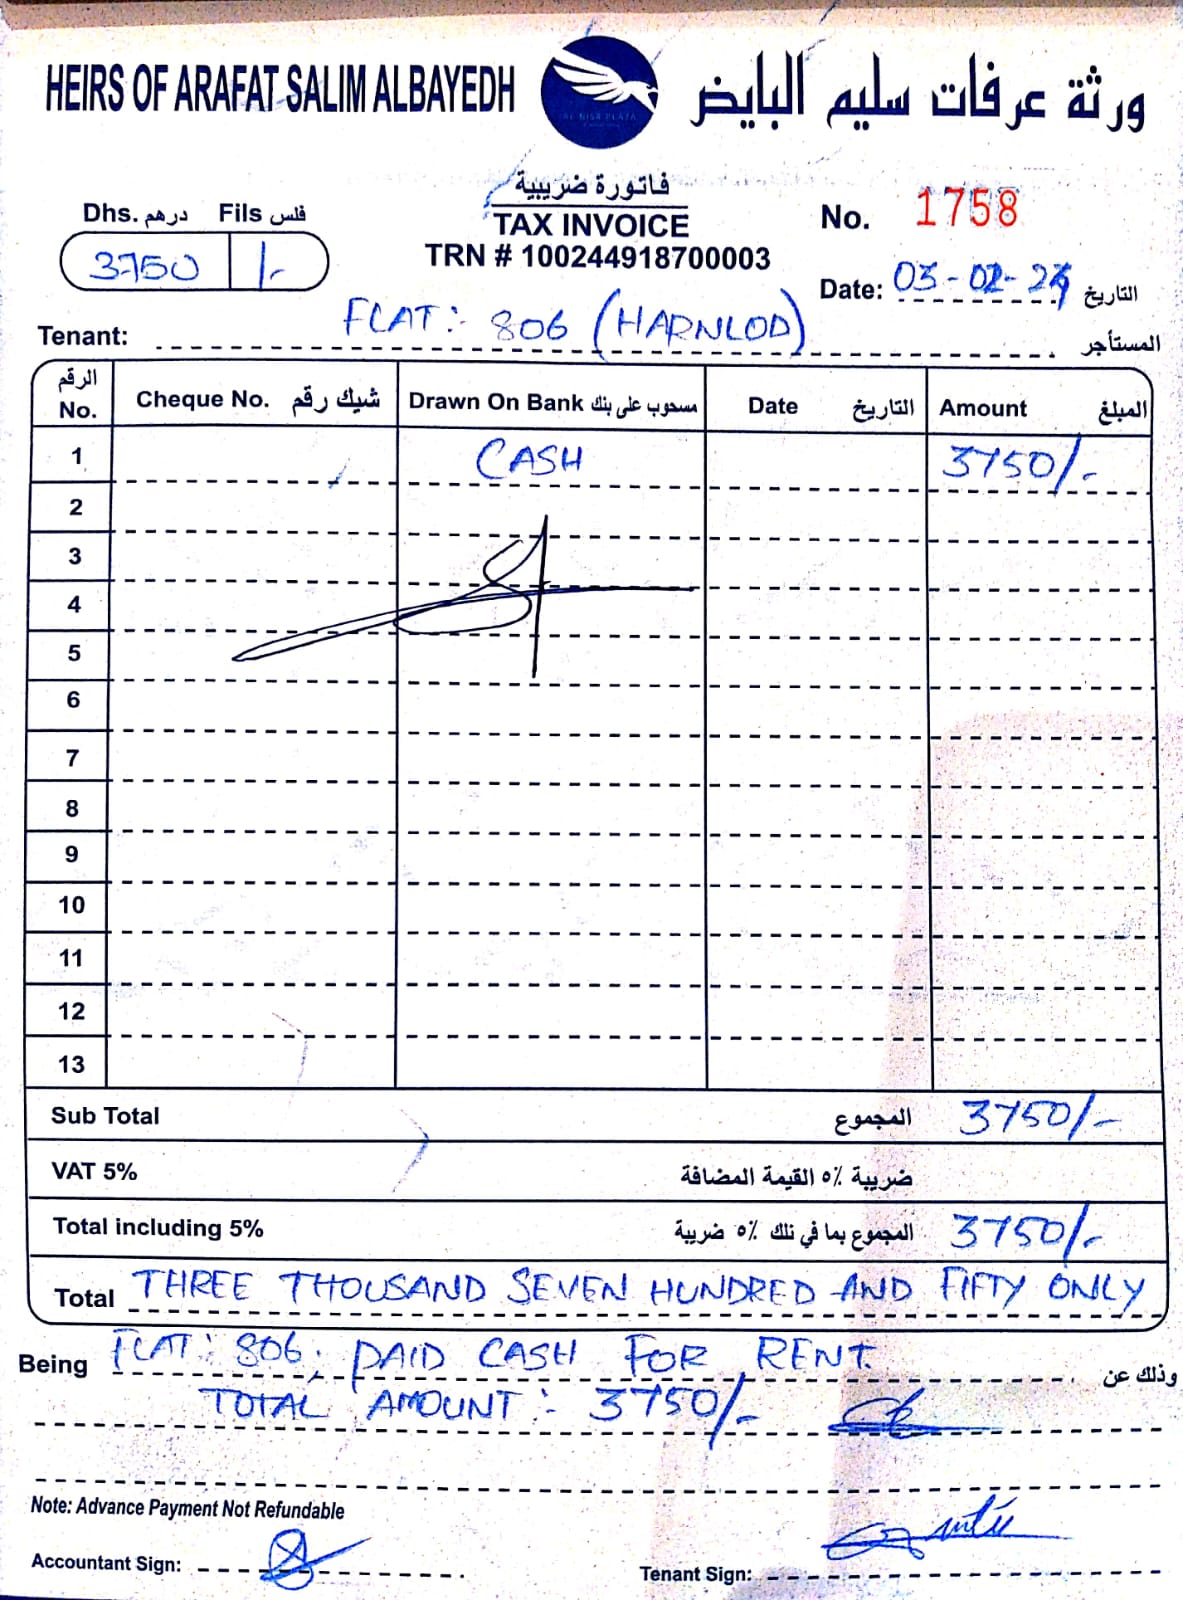 HEIRS OF ARAFAT SALIM ALBAYEDH ورثة عرفات سليم البايض
AL NISR PLAZA
فاتورة ضريبية
TAX INVOICE
TRN # 100244918700003
Dhs. درهم Fils فلس
3750 /-
No. 1758
Date: 03-02-24 التاريخ
Tenant: FLAT:- 806 (HARNLOD) المستأجر
الرقم No. Cheque No. شيك رقم Drawn On Bank مسحوب على بنك Date التاريخ Amount المبلغ
1 CASH 3750/-
2
3
4
5
6
7
8
9
10
11
12
13
Sub Total المجموع 3750/-
VAT 5% ضريبة ٥٪ القيمة المضافة
Total including 5% المجموع بما في تلك ٥٪ ضريبة 3750/-
Total THREE THOUSAND SEVEN HUNDRED AND FIFTY ONLY
Being FLAT:- 806, PAID CASH FOR RENT. وذلك عن
TOTAL AMOUNT:- 3750/-
Note: Advance Payment Not Refundable
Accountant Sign:
Tenant Sign: